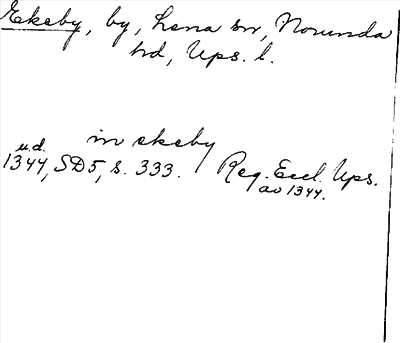 Ekeby, by, Lena sn, Norunda
hd, Ups. l.
in ekeby
u.d.
1344, SD5, s. 333. Reg. Eccl. Ups.
av 1344.